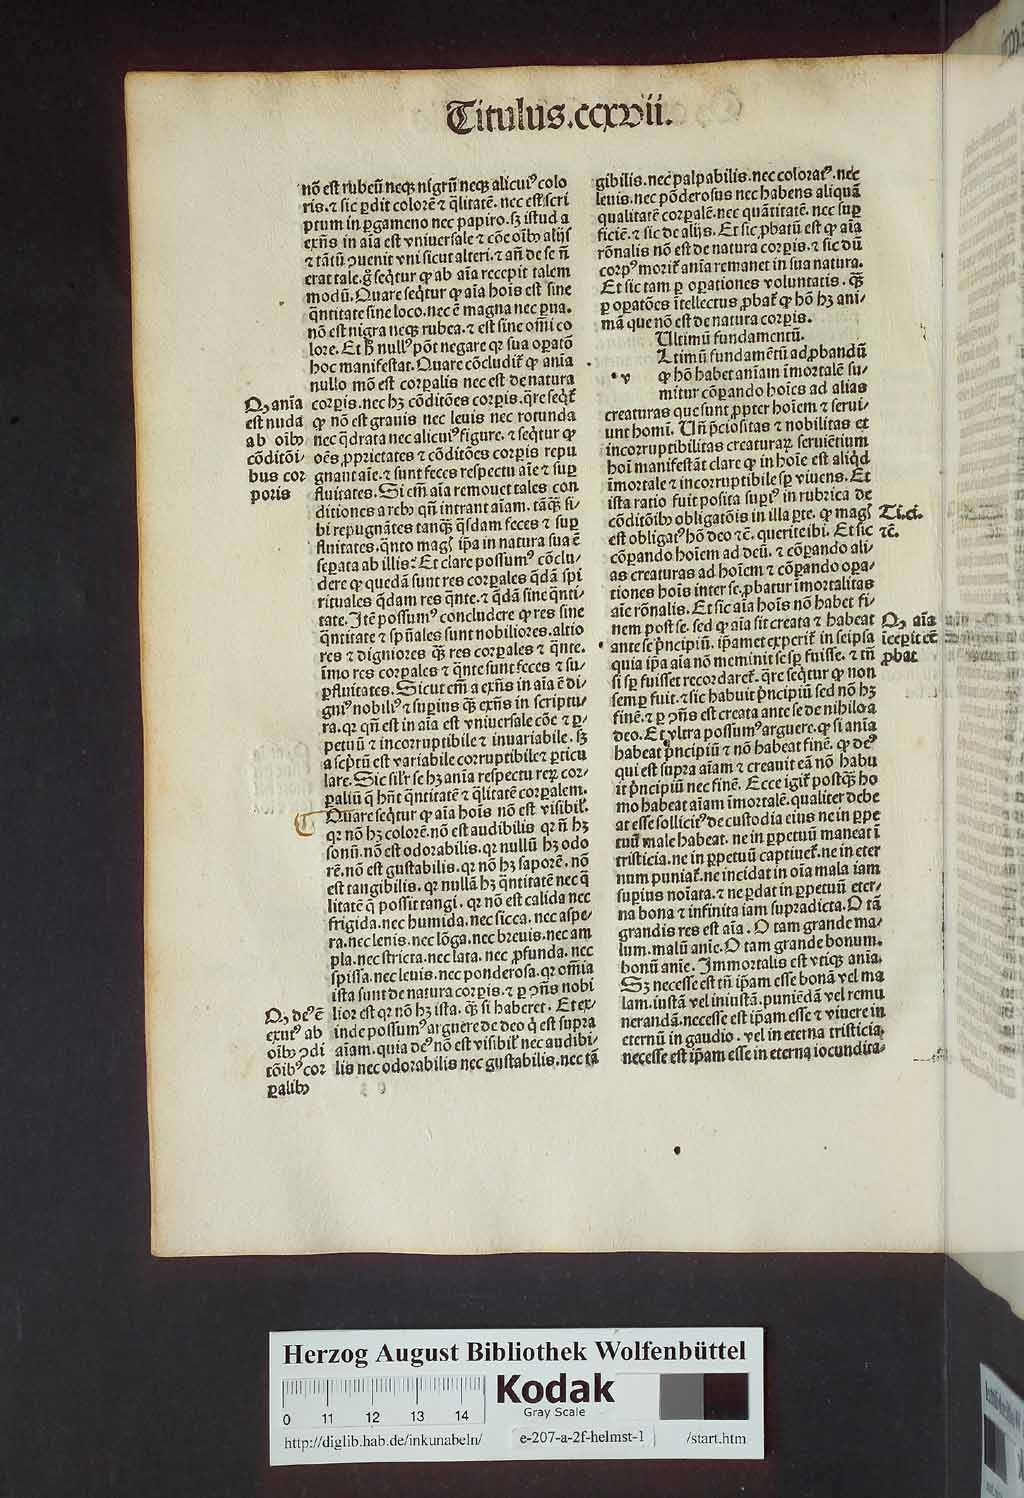 Titulus.ccxvii.
nō est rubeū neqꝫ nigrū neqꝫ alicuiꝰ colo
ris.⁊ sic ꝑdit colorē ⁊ q̄litatē. nec est scri
ptum in ꝑgameno nec papiro. sꝫ istud a
exn̄s in aīa est vniuersale ⁊ cōe oībꝫ alijs
⁊ tātū ꝯuenit vni sicut alteri.⁊ an̄ de se n̄
erat tale. g̊ seq̄tur ꝙ ab aīa recepit talem
modū. Quare seq̄tur ꝙ aīa hoīs est sine
q̄ntitate sine loco. nec ē magna nec ꝑua.
nō est nigra neqꝫ rubea. ⁊ est sine om̄i co
lore. Et ħ nullꝰ pōt negare qꝛ sua oꝑatō
hoc manifestat. Quare cōcludit̃ ꝙ anīa
nullo mō est corꝑalis nec est de natura
corꝑis. nec hꝫ cōditōes corꝑis. q̄re seq̄t̃
ꝙ nō est grauis nec leuis nec rotunda
nec q̄drata nec alicuiꝰ figure. ⁊ seq̄tur ꝙ
oēs ꝓprietates ⁊ cōditōes corꝑis repu
gnant aīe. ⁊ sunt feces respectu aīe ⁊ suꝑ
fluitates. Si em̄ aīa remouet tales con
ditiones a rebꝫ qn̄ intrant aīam. tāqꝫ̄ si/
bi repugnātes tanqꝫ̄ q̄sdam feces ⁊ suꝑ
fluitates. q̄nto magꝭ ip̄a in natura sua ē
seꝑata ab illis: Et clare possumꝰ cōclu/
dere ꝙ quedā sunt res corꝑales q̄dā spi
rituales q̄dam res q̄nte. ⁊ q̄dā sine q̄nti/
tate. Itē possumꝰ concludere ꝙ res sine
q̄ntitate ⁊ sp̄ūales sunt nobiliores. altio
res ⁊ digniores qꝫ̄ res corꝑales ⁊ q̄nte.
īmo res corꝑales ⁊ q̄nte sunt feces ⁊ su/
ꝑfluitates. Sicut em̄ a exn̄s in aīa ē di/
gniꝰ nobiliꝰ ⁊ suꝑius qꝫ̄ exn̄s in scriptu/
ra. qꝛ qn̄ est in aīa est vniuersale cōe ⁊ ꝑ/
petuū ⁊ incorruptibile ⁊ inuariabile. sꝫ
a scꝑtū est variabile corruptibile ⁊ ꝑticu
lare. Sic sil̃r se hꝫ anīa respectu reꝝ cor/
ꝑaliū q̄ hn̄t q̄ntitatē ⁊ q̄litatē corꝑalem.
Quare seq̄tur ꝙ aīa hoīs nō est visibil̃.
qꝛ nō hꝫ colorē. nō est audibilis qꝛ n̄ hꝫ
sonū. nō est odorabilis. qꝛ nullū hꝫ odo
rē. nō est gustabilis. qꝛ nō hꝫ saporē. nō
est tangibilis. qꝛ nullā hꝫ q̄ntitatē nec q̄
litatē q̄ possit tangi. qꝛ nō est calida nec
frigida. nec humida. nec sicca. nec aspe/
ra. nec lenis. nec lōga. nec breuis. nec am
pla. nec stricta. nec lata. nec ꝓfunda. nec
spissa. nec leuis. nec ponderosa. qꝛ om̄ia
ista sunt de natura corꝑis. ⁊ ꝑ ꝯn̄s nobi
lior est qꝛ nō hꝫ ista. qꝫ̄ si haberet. Et ex/
inde possumꝰ arguere de deo q̇ est supra
aīam. quia deꝰ nō est visibil̃ nec audibi/
lis nec odorabilis nec gustabilis. nec tā
Qꝫ anīa
est nuda
ab oībꝫ
cōditōi/
bus cor
poris
Qꝫ deꝰ ē
exutꝰ ab
oībꝫ ꝯdi
tōibꝰ cor
ꝑalibꝫ
gibilis. nec palpabilis. nec coloratꝰ. nec
leuis. nec pōderosus nec habens aliquā
qualitatē corꝑalē. nec quātitatē. nec suꝑ
ficiē. ⁊ sic de alijs. Et sic ꝓbatū est ꝙ aīa
rōnalis nō est de natura corꝑis. ⁊ sic dū
corpꝰ morit̃ anīa remanet in sua natura.
Et sic tam ꝑ oꝑationes voluntatis. qꝫ̄
ꝑ oꝑatōes ītellectus ꝓbat̃ ꝙ hō hꝫ ani/
mā que nō est de natura corꝑis.
Ultimū fundamentū.
v
Ltimū fundamētū ad ꝓbandū
ꝙ hō habet anīam īmortalē su/
mitur cōꝑando hoīes ad alias
creaturas que sunt ꝓpter hoīem ⁊ serui/
unt homī. Uñ p̄ciositas ⁊ nobilitas et
incorruptibilitas creaturaꝝ seruiētium
hoī manifestāt clare ꝙ in hoīe est aliq̇d
īmortale ⁊ incorruptibile sꝑ viuens. Et
ista ratio fuit posita suꝑiꝰ in rubrica de
cōditōibꝫ obligatōis in illa ꝑte. ꝙ magꝭ
est obligatꝰ hō deo ⁊c̄. querite ibi. Et sic
cōꝑando hoīem ad deū. ⁊ cōꝑando ali/
as creaturas ad hoīem ⁊ cōꝑando oꝑa/
tiones hoīs inter se. ꝓbatur īmortalitas
aīe rōnalis. Et sic aīa hoīs nō habet fi/
nem post se. sed ꝙ aīa sit creata ⁊ habeat
ante se p̄ncipiū. ip̄amet experit̃ in seipsa
quia ip̄a aīa nō meminit se sꝑ fuisse. ⁊ tn̄
si sꝑ fuisset recordaret̃. q̄re seq̄tur ꝙ non
semꝑ fuit. ⁊ sic habuit p̄ncipiū sed nō hꝫ
finē. ⁊ ꝑ ꝯn̄s est creata ante se de nihilo a
deo. Et vltra possumꝰ arguere. ꝙ si anīa
habeat p̄ncipiū ⁊ nō habeat finē. ꝙ deꝰ
qui est supra aīam ⁊ creauit eā nō habu
it p̄ncipiū nec finē. Ecce igit̃ postqꝫ̄ ho
mo habeat aīam īmortalē. qualiter debe
at esse sollicitꝰ de custodia eius ne in ꝑpe
tuū male habeat. ne in ꝑpetuū maneat ī
tristicia. ne in ꝑpetuū captiuet̃. ne in eter
num puniat̃. ne incidat in oīa mala iam
suꝑius noīata. ⁊ ne ꝑdat in ꝑpetuū eter/
na bona ⁊ infinita iam supradicta. O tā
grandis res est aīa. O tam grande ma/
lum. malū anīe. O tam grande bonum.
bonū anīe. Immortalis est vtiqꝫ anīa.
Sꝫ necesse est tn̄ ip̄am esse bonā vel ma
lam. iustā vel iniustā. puniēdā vel remu
nerandā. necesse est ip̄am esse ⁊ viuere in
eternū in gaudio. vel in eterna tristicia.
necesse est ip̄am esse in eterna iocundita/
Ti.ci.
⁊c̄.
Qꝫ aīa
īceꝑit eē
ꝓbat
Herzog August Bibliothek Wolfenbüttel
Kodak
Gray Scale
0 11 12 13 14
http://diglib.hab.de/inkunabeln/ e-207-a-2f-helmst-1 /start.htm